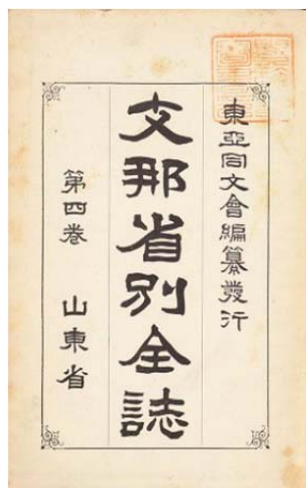 東亞同文會編纂發行
支那省別全誌
第四卷 山東省